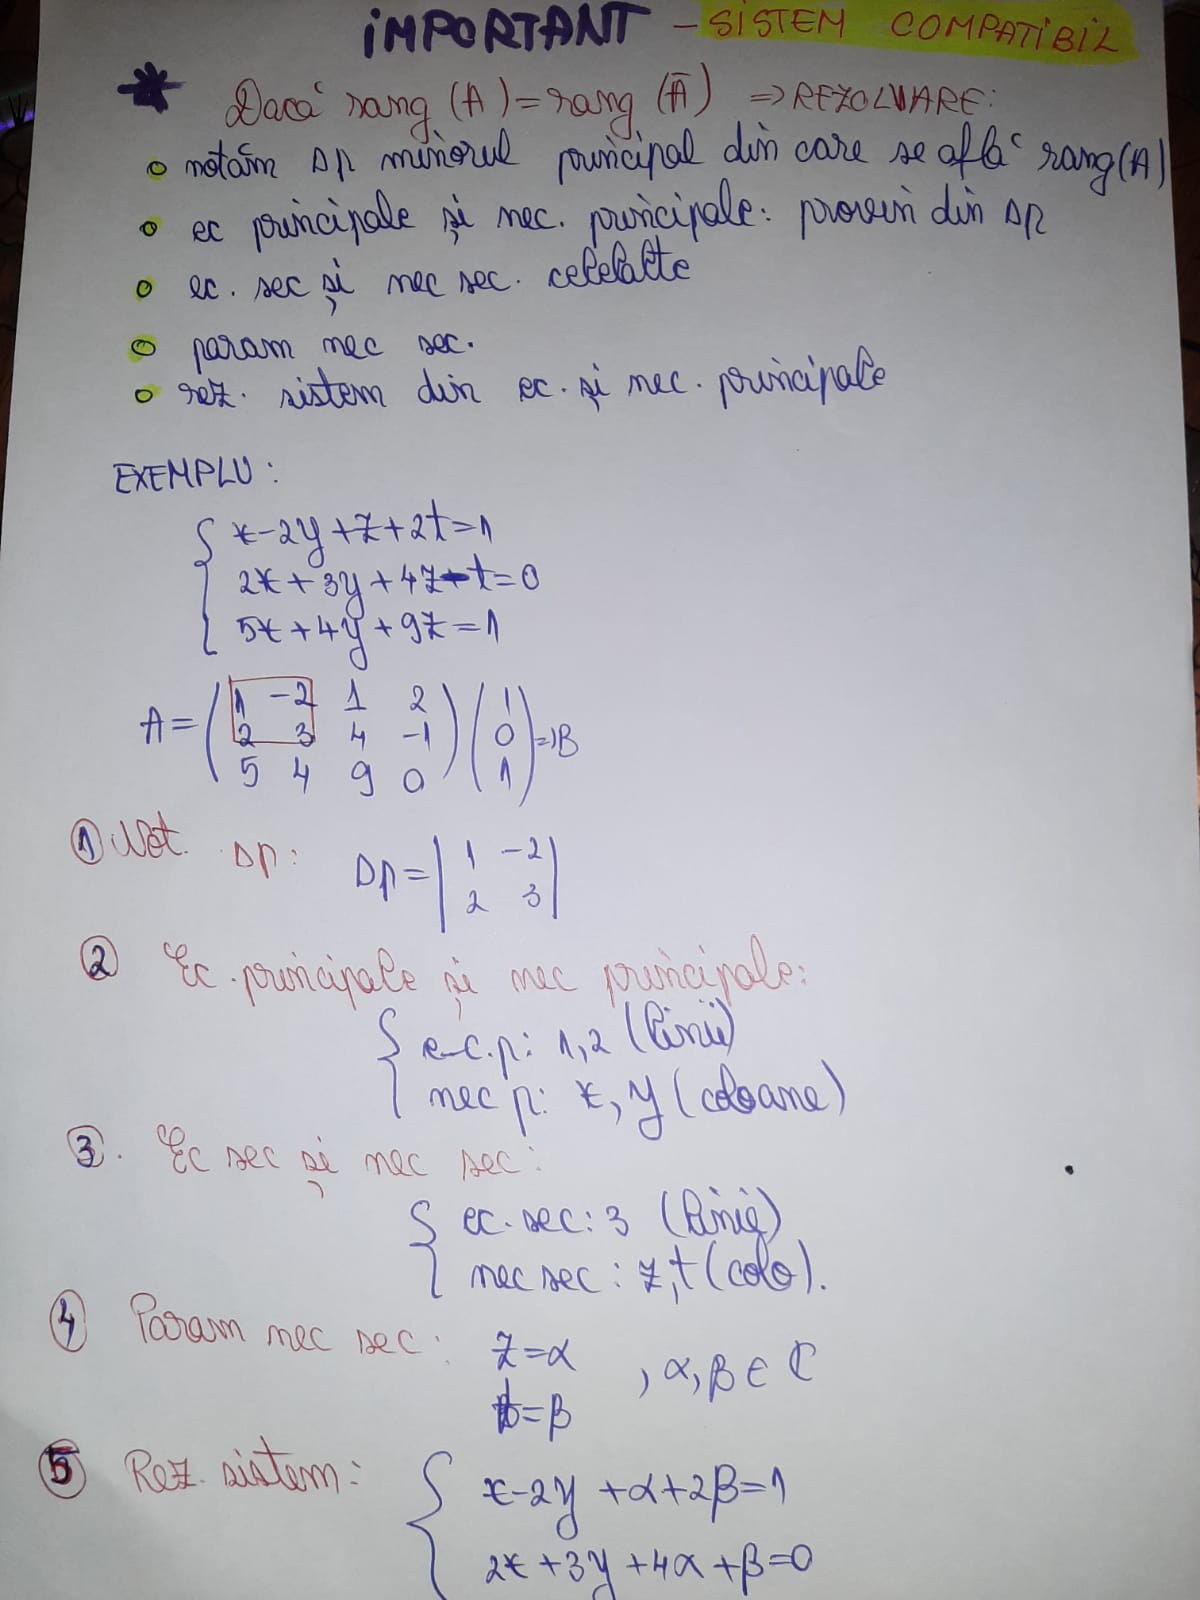 IMPORTANT - SISTEM COMPATIBIL
* Dacă rang (A) = rang (Ā) => REZOLVARE:
o notăm Δp minorul principal din care se află rang(A)
o ec principale și nec. principale: provin din Δp
o ec. sec și nec sec. celelalte
o param nec sec.
o rez. sistem din ec. și nec. principale
EXEMPLU:
{ x-2y+z+2t=1
2x+3y+4z-t=0
5x+4y+9z=1
A = ( 1 -2 1 2 ) ( 1 )
2 3 4 -1 0 => B
5 4 9 0 1
① Not. Δp: Δp = | 1 -2 |
2 3
② Ec. principale și nec principale:
{ e-c.p: 1,2 (linii)
nec p: x, y (coloane)
③. Ec sec și nec sec:
{ ec. sec: 3 (linie)
nec sec: z,t (colo).
④ Param nec sec: z=α , α, β ∈ ℂ
t=β
⑤ Rez. sistem: { x-2y+α+2β=1
2x+3y+4α+β=0